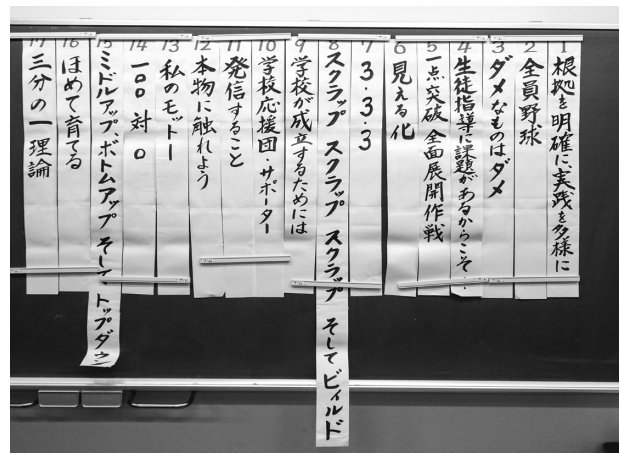 1 根拠を明確に、実践を多様に
2 全員野球
3 ダメなものはダメ
4 生徒指導に課題があるからこそ・・
5 一点突破 全面展開作戦
6 見える化
7 3・3・3
8 スクラップ スクラップ スクラップ そして ビィルド
9 学校が成立するためには
10 学校応援団・サポーター
11 発信すること
12 本物に触れよう
13 私のモットー
14 一〇〇 対 〇
15 ミドルアップ、ボトムアップ そして トップダウン
16 ほめて育てる
17 三分の一理論